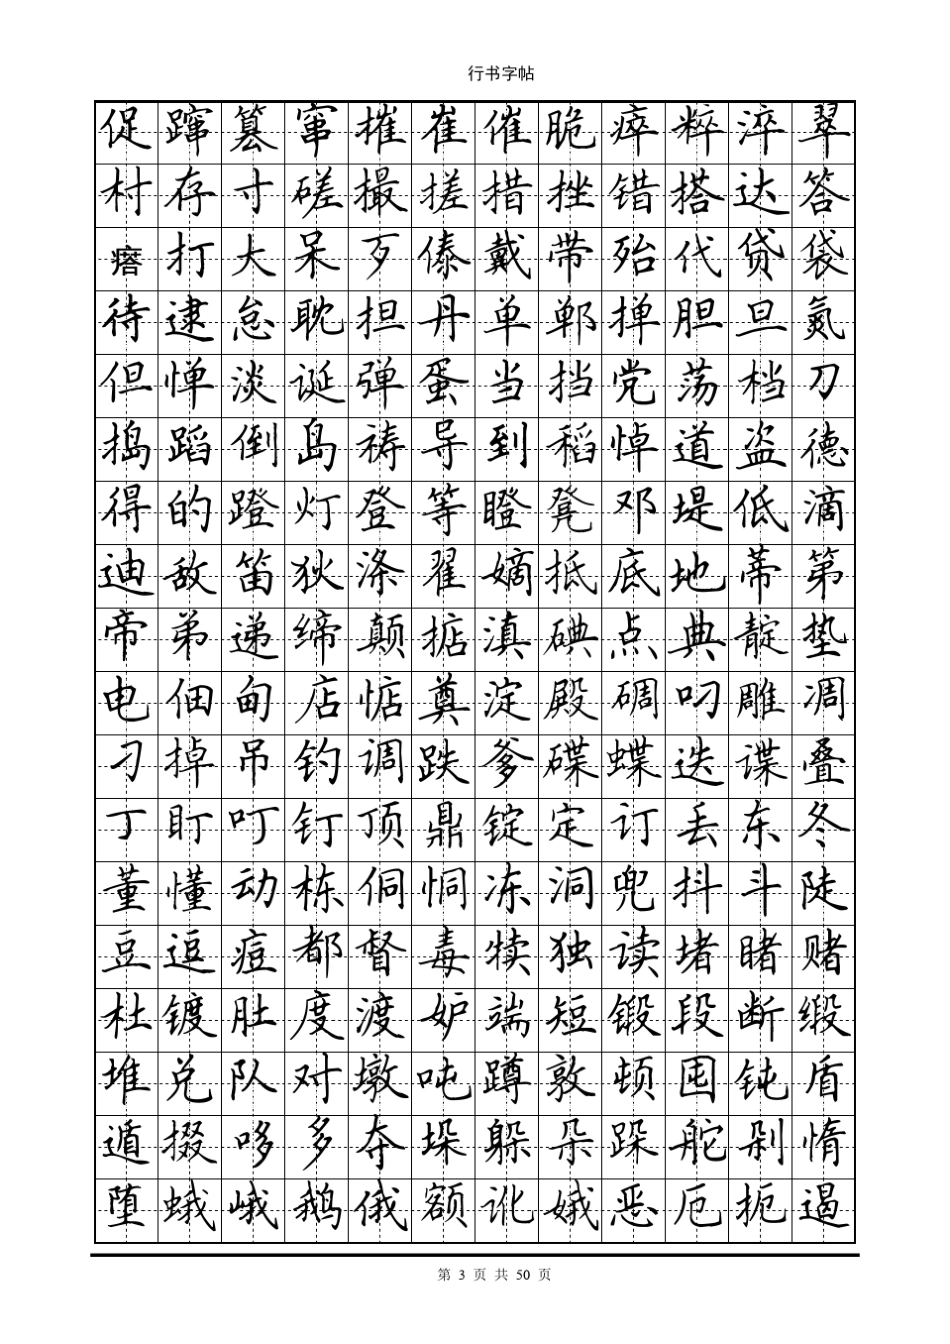 行书字帖
促蹿篡窜摧崔催脆瘁粹淬翠
村存寸磋撮搓措挫错搭达答
瘩打大呆歹傣戴带殆代贷袋
待逮怠耽担丹单郸掸胆旦氮
但惮淡诞弹蛋当挡党荡档刀
捣蹈倒岛祷导到稻悼道盗德
得的蹬灯登等瞪凳邓堤低滴
迪敌笛狄涤翟嫡抵底地蒂第
帝弟递缔颠掂滇碘点典靛垫
电佃甸店惦奠淀殿碉叼雕凋
刁掉吊钓调跌爹碟蝶迭谍叠
丁盯叮钉顶鼎锭定订丢东冬
董懂动栋侗恫冻洞兜抖斗陡
豆逗痘都督毒犊独读堵睹赌
杜镀肚度渡妒端短锻段断缎
堆兑队对墩吨蹲敦顿囤钝盾
遁掇哆多夺垛躲朵跺舵剁惰
堕蛾峨鹅俄额讹娥恶厄扼遏
第 3 页 共 50 页